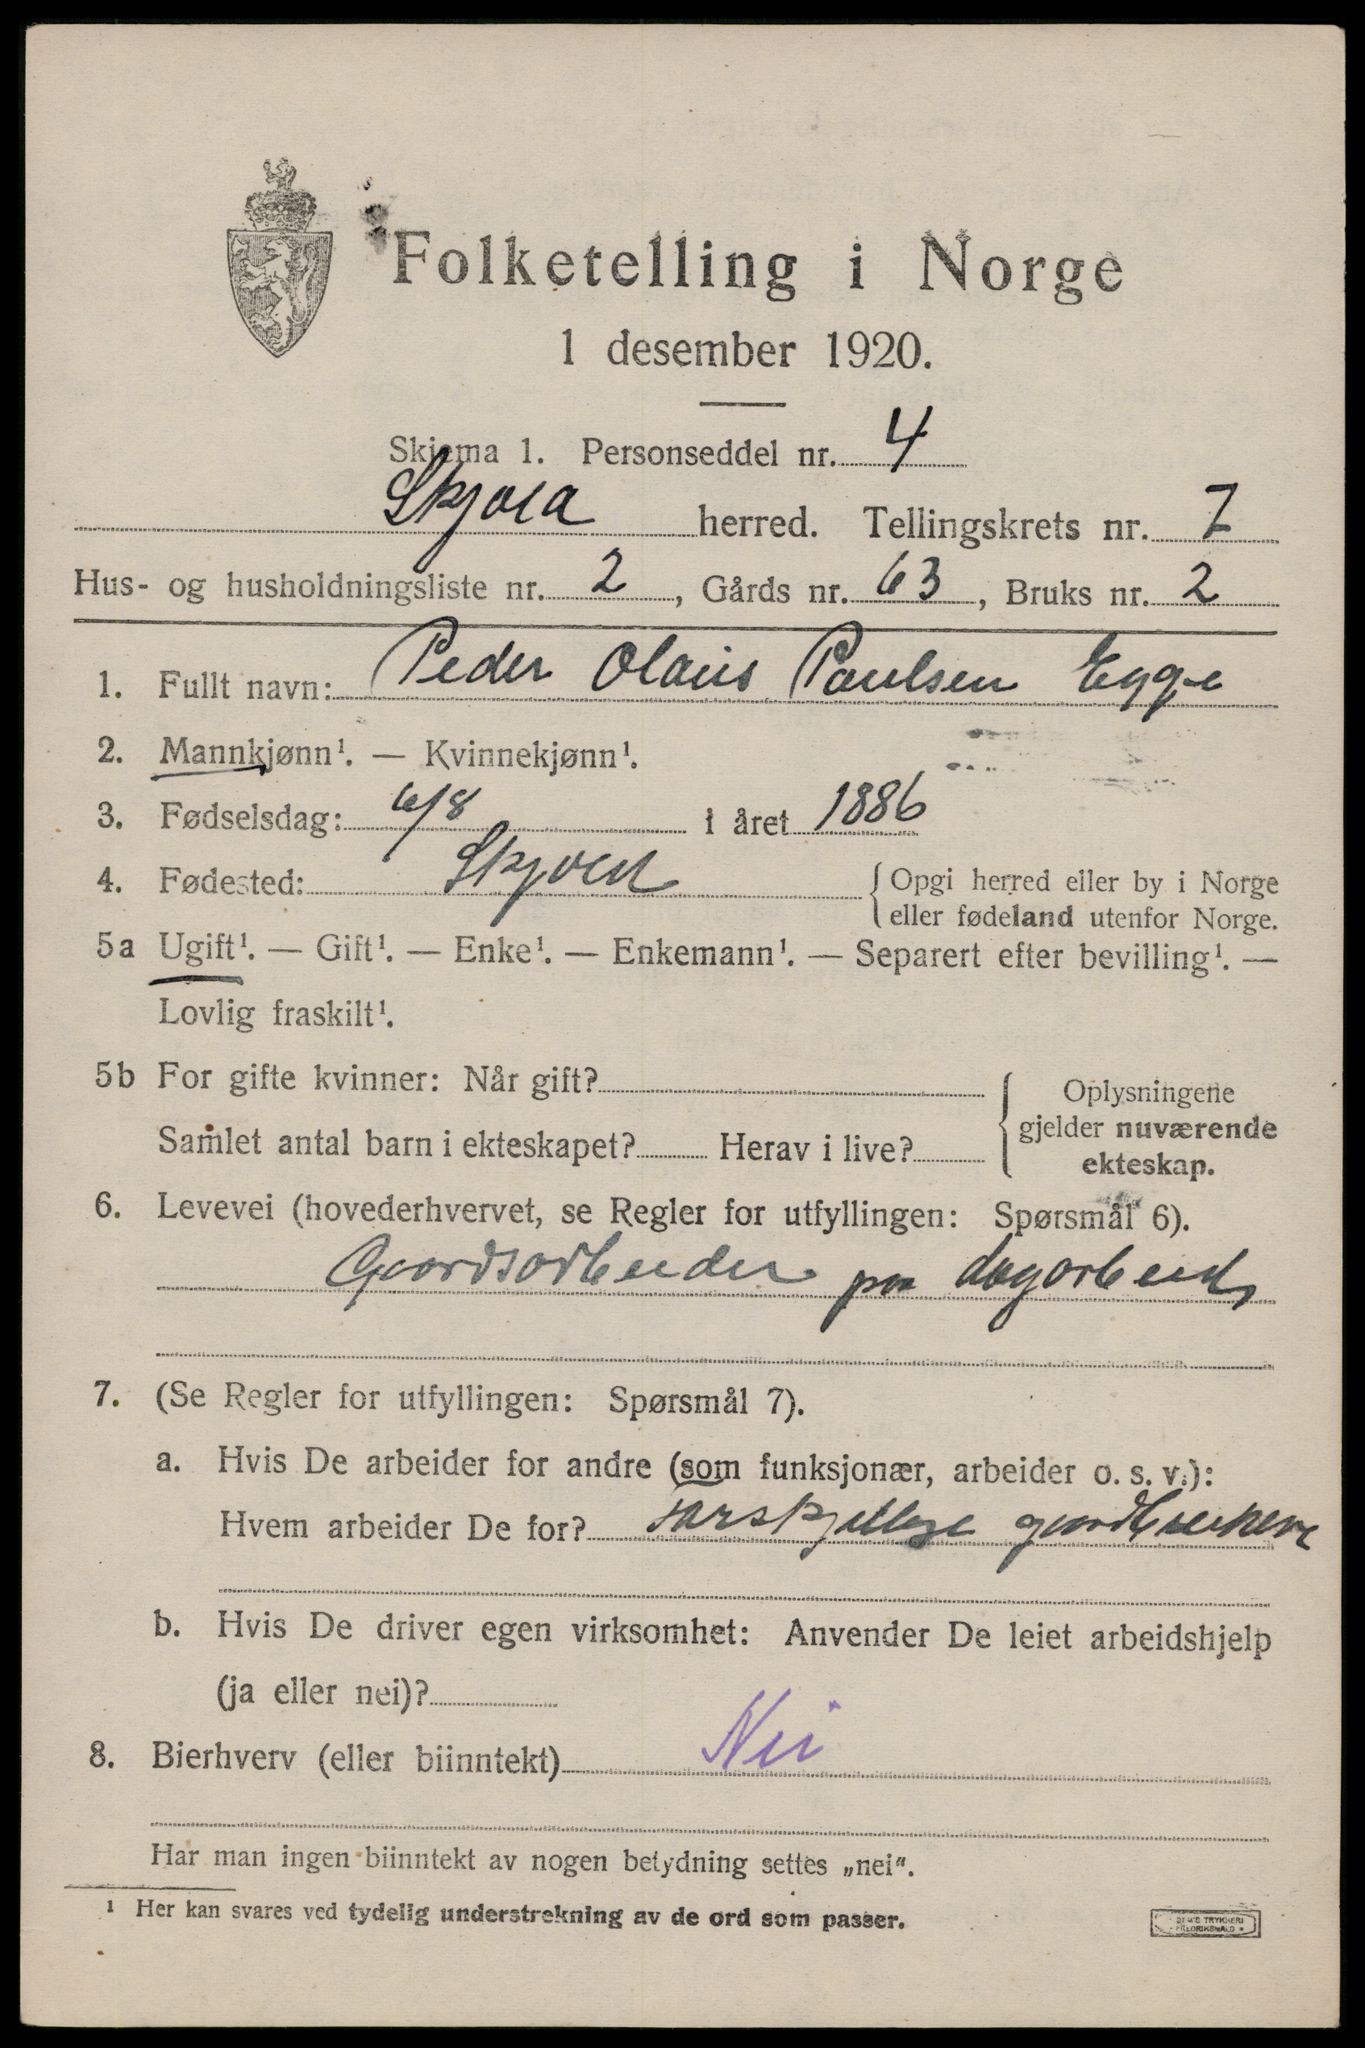 Folketelling i Norge
1 desember 1920.
Skjema 1. Personseddel nr. 4
Skjold herred. Tellingskrets nr. 7
Hus- og husholdningsliste nr. 2, Gårds nr. 63, Bruks nr. 2
1. Fullt navn: Peder Olaus Paulsen Egge
2. Mannkjønn¹. — Kvinnekjønn¹.
3. Fødselsdag: 6/8 i året 1886
4. Fødested: Skjold { Opgi herred eller by i Norge
eller fødeland utenfor Norge.
5a Ugift¹. — Gift¹. — Enke¹. — Enkemann¹. — Separert efter bevilling¹. —
Lovlig fraskilt¹.
5b For gifte kvinner: Når gift?
Samlet antal barn i ekteskapet? Herav i live?
{ Oplysningene
gjelder nuværende
ekteskap.
6. Levevei (hovederhvervet, se Regler for utfyllingen: Spørsmål 6).
Gaardsarbeider paa dagarbeid
7. (Se Regler for utfyllingen: Spørsmål 7).
a. Hvis De arbeider for andre (som funksjonær, arbeider o. s. v.):
Hvem arbeider De for? Forskjellige gaardbrukere
b. Hvis De driver egen virksomhet: Anvender De leiet arbeidshjelp
(ja eller nei)?
8. Bierhverv (eller biinntekt) Nei
Har man ingen biinntekt av nogen betydning settes „nei“.
¹ Her kan svares ved tydelig understrekning av de ord som passer.
TRYKKERI
FREDRIKSHALD